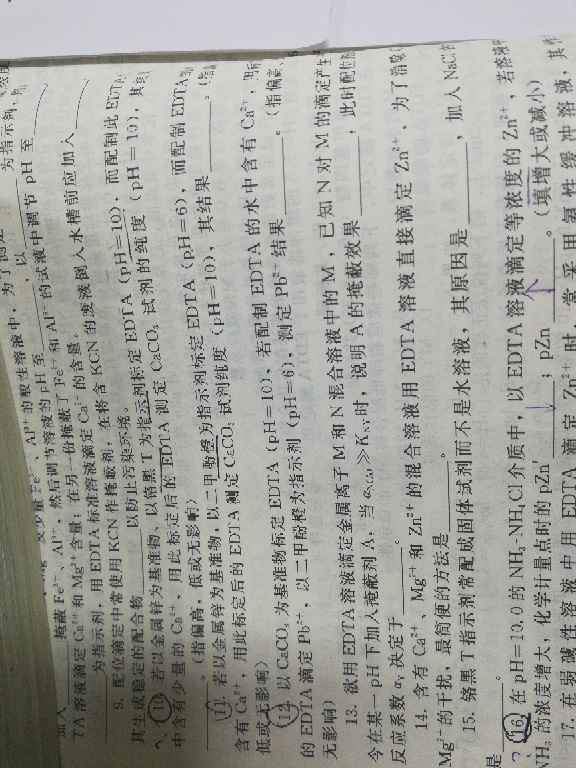 为指示剂,
及少量 Fe³⁺、Al³⁺的酸性溶液中,为了测定
加入______掩蔽 Fe³⁺、Al³⁺,然后调节溶液的 pH 至______,以
TA 溶液滴定 Ca²⁺和 Mg²⁺含量;在另一份掩蔽了 Fe³⁺和 Al³⁺的试液中调节 pH 至
______为指示剂,用 EDTA 标准溶液滴定 Ca²⁺的含量。
9. 配位滴定中常使用 KCN 作掩蔽剂,在将含 KCN 的废液倒入水槽前应加入______
其生成稳定的配合物______以防止污染环境。
10. 若以金属锌为基准物、以铬黑 T 为指示剂标定 EDTA(pH=10),而配制此 EDTA
中含有少量的 Ca²⁺,用此标定后的 EDTA 测定 CaCO₃ 试剂的纯度(pH=10),其
______。(指偏高,低或无影响)
11. 若以金属锌为基准物,以二甲酚橙为指示剂标定 EDTA(pH=6),而配制 EDTA
含有 Ca²⁺,用此标定后的 EDTA 测定 CaCO₃ 试剂纯度(pH=10),其结果______。(指
低或无影响)
12. 以 CaCO₃ 为基准物标定 EDTA(pH=10),若配制 EDTA 的水中含有 Ca²⁺,
的 EDTA 滴定 Pb²⁺,以二甲酚橙为指示剂(pH=6),测定 Pb²⁺结果______。(指偏高、
无影响)
13. 欲用 EDTA 溶液滴定金属离子 M 和 N 混合溶液中的 M,已知 N 对 M 的滴定产生
今在某一 pH 下加入掩蔽剂 A,当 时,说明 A 的掩蔽效果______,此时配位
反应系数 αY 决定于______。
14. 含有 Ca²⁺、Mg²⁺和 Zn²⁺的混合溶液用 EDTA 溶液直接滴定 Zn²⁺,为了消除
Mg²⁺的干扰,最简便的方法是______。
15. 铬黑 T 指示剂常配成固体试剂而不是水溶液,其原因是______,加入 NaCl
是______。
16. 在 pH=10.0 的 NH₃-NH₄Cl 介质中,以 EDTA 溶液滴定等浓度的 Zn²⁺,若溶液
NH₃ 的浓度增大,化学计量点时的 pZn′______;pZn______。(填增大或减小)
17. 在弱碱性溶液中用 EDTA 滴定 Zn²⁺时,常采用氨性缓冲溶液,其